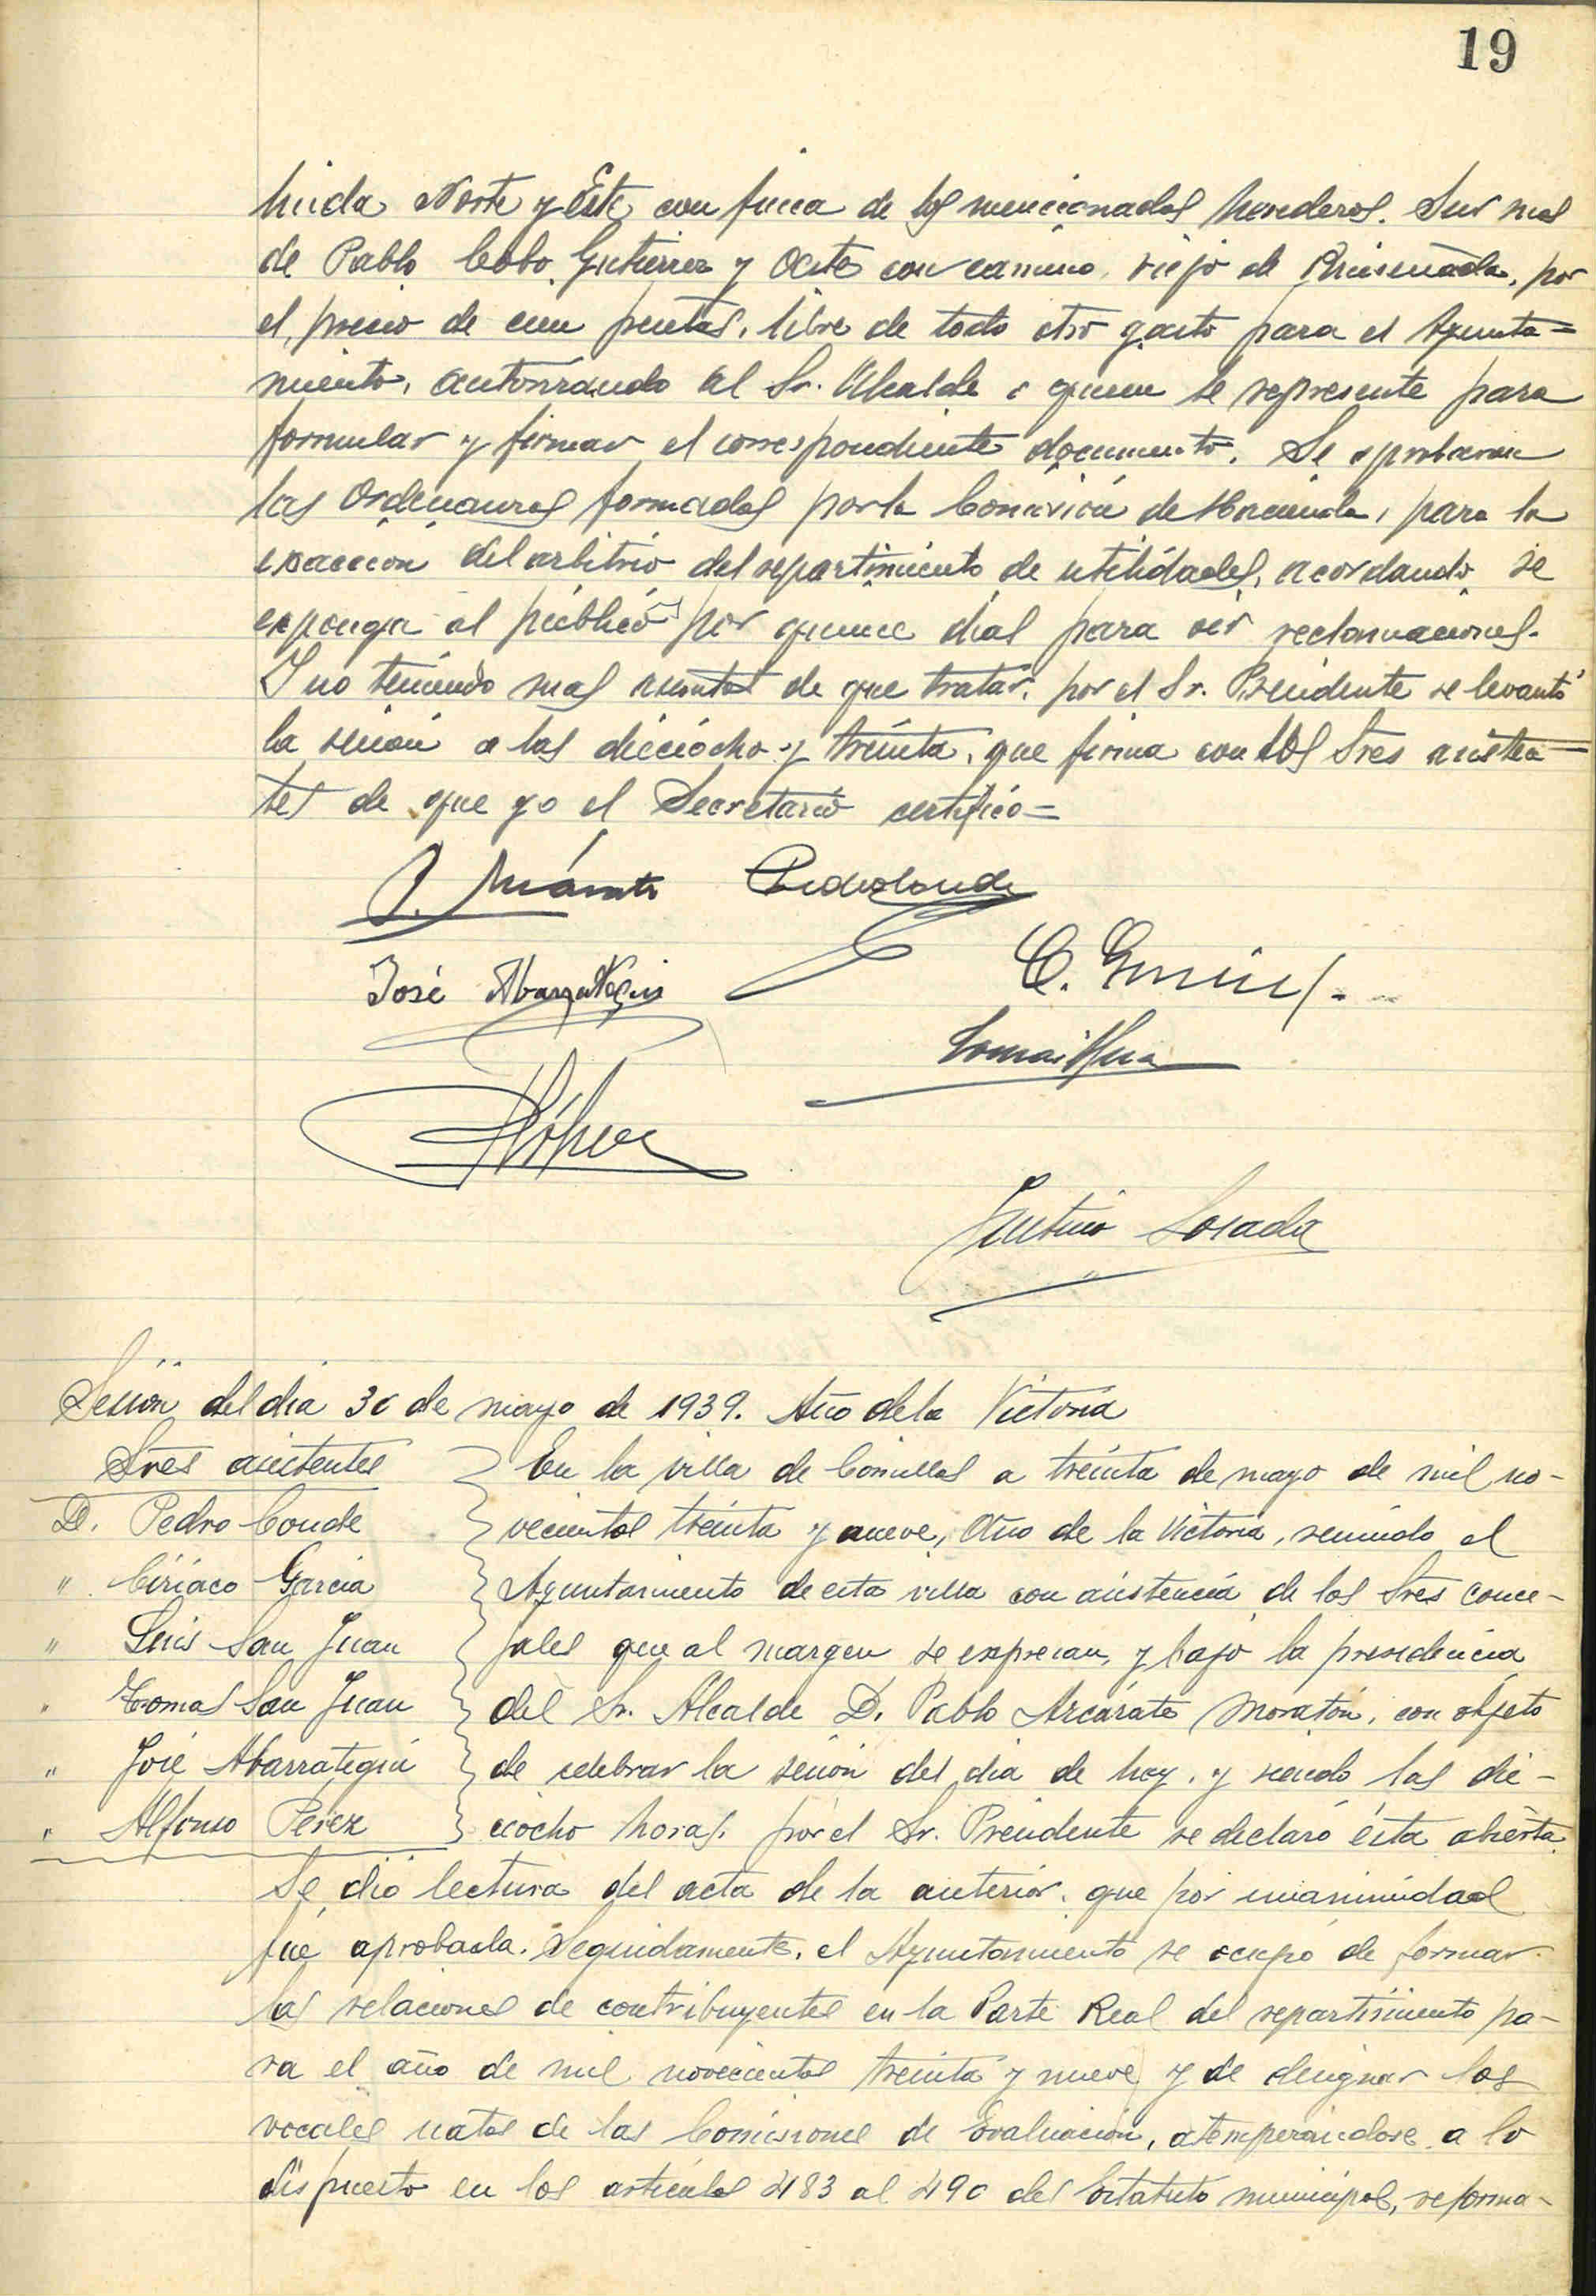 19
linda Norte y Este con finca de los mencionados herederos. Sur mas
de Pablo Cobo Gutierrez y Oeste con camino viejo de Ruiseñada, por
el precio de cien pesetas, libre de todo otro gasto para el Ayunta=
miento, autorizando al Sr. Alcalde o quien le represente para
formular y firmar el correspondiente documento. Se aprobaron
las Ordenanzas formadas por la Comisión de Hacienda, para la
exacción del arbitrio del repartimiento de utilidades, acordando se
exponga al público por quince dias para oir reclamaciones.
Y no teniendo mas asuntos de que tratar, por el Sr. Presidente se levantó
la sesion a las dieciocho y treinta, que firma con los Sres asisten=
tes de que yo el Secretario certifico=
José Abarrategui
Losada
Sesión del dia 30 de mayo de 1939. Año de la Victoria
Sres asistentes
D. Pedro Conde
" Ciriaco Garcia
" Luis San Juan
" Tomas San Juan
" José Abarrategui
" Alfonso Perez
En la villa de Comillas a treinta de mayo de mil no-
vecientos treinta y nueve, Año de la Victoria, reunido el
Ayuntamiento de esta villa con asistencia de los Sres conce-
jales que al margen se expresan, y bajo la presidencia
del Sr. Alcalde D. Pablo Arcárate Moratón, con objeto
de celebrar la sesion del dia de hoy, y siendo las die-
ciocho horas, por el Sr. Presidente se declaró ésta abierta.
Se dió lectura del acta de la anterior, que por unanimidad
fue aprobada. Seguidamente, el Ayuntamiento se ocupó de formar
las relaciones de contribuyentes en la Parte Real del repartimiento pa-
ra el año de mil novecientos treinta y nueve y de designar los
vocales natos de las Comisiones de Evaluación, atemperandose a lo
dispuesto en los articulos 483 al 490 del Estatuto municipal, reforma-